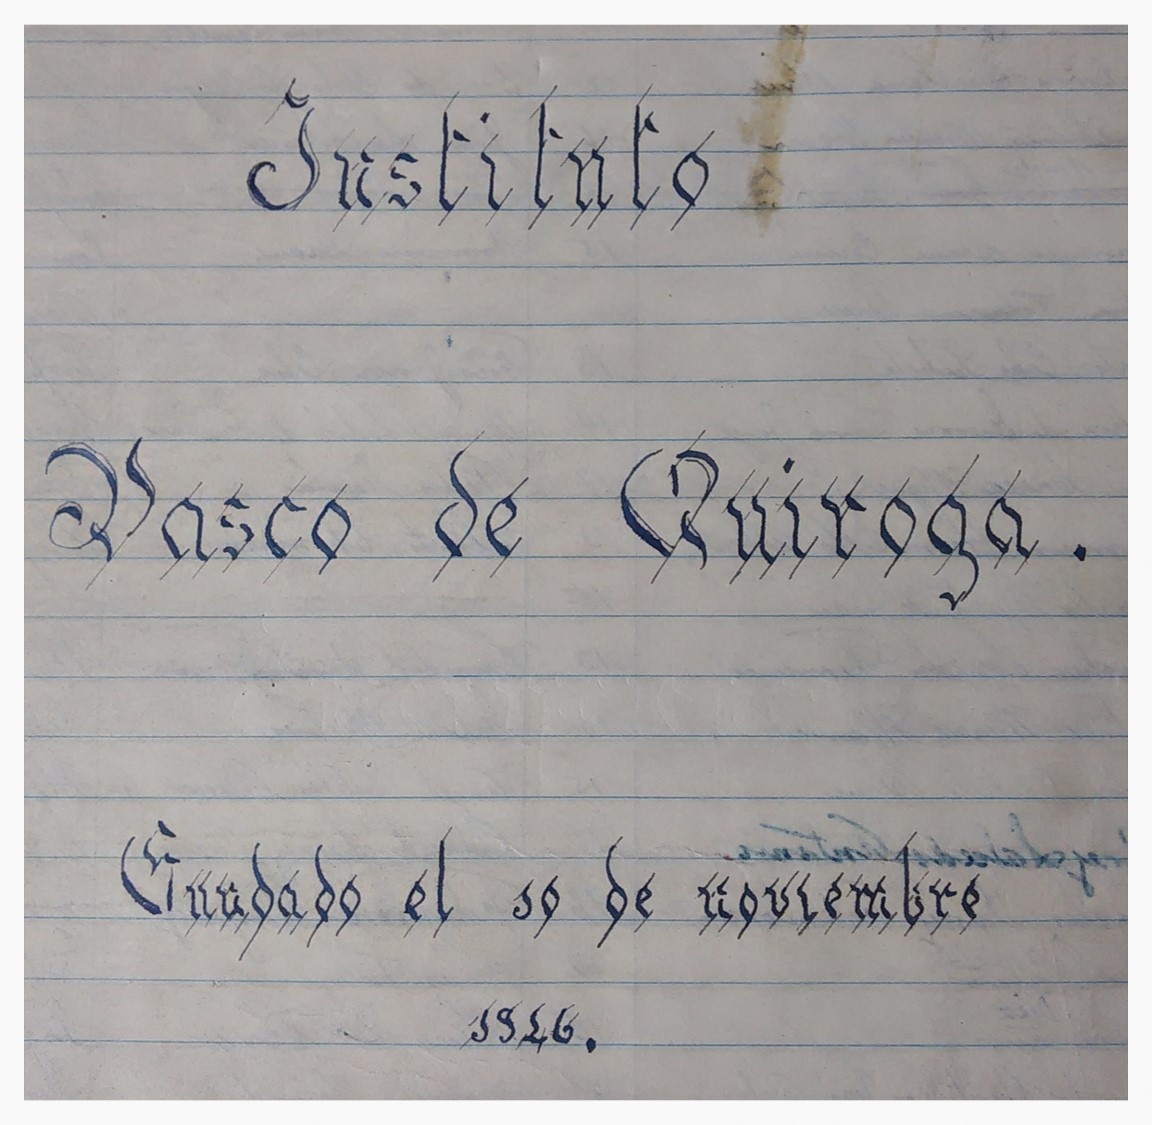 Instituto
Vasco de Quiroga.
Fundado el 10 de noviembre
1926.